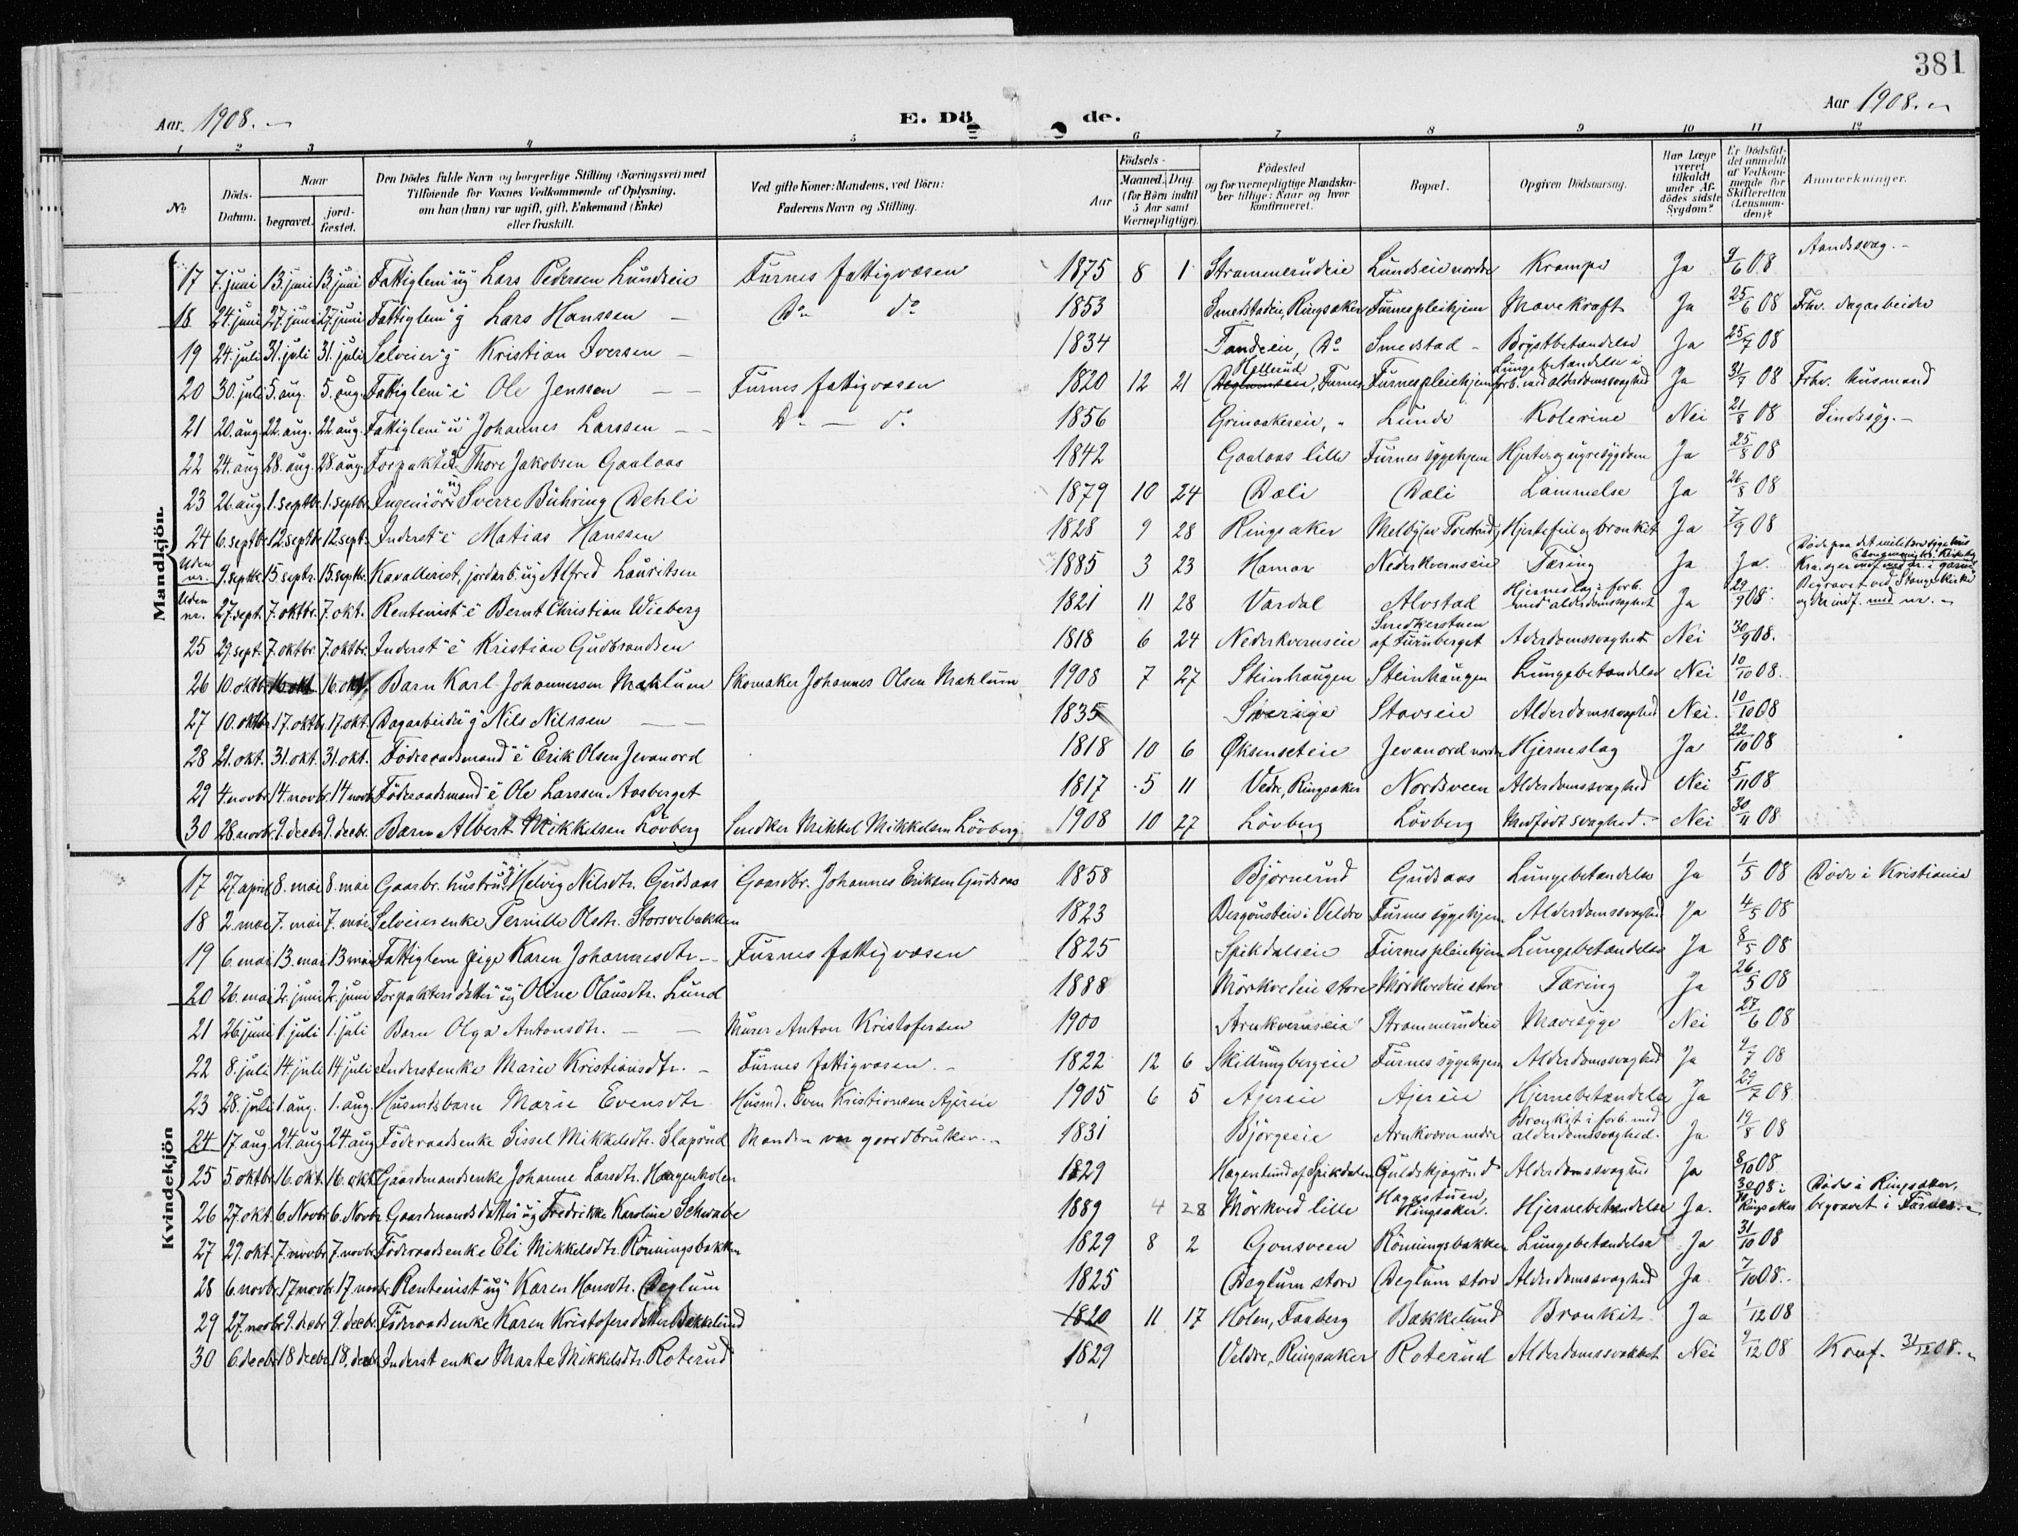 381
Aar 1908.
E. Döde.
Aar 1908.
1 2 3 4 5 6 7 8 9 10 11 12
No
Döds-Datum.
Naar begravet. jordfæstet.
Den Dödes fulde Navn og borgerlige Stilling (Næringsvei) med Tilföiende for Voxnes Vedkommende af Oplysning, om han (hun) var ugift, gift, Enkemand (Enke) eller fraskilt.
Ved gifte Koner: Mandens, ved Börn: Faderens Navn og Stilling.
Födsels-
Aar Maaned. Dag. (for Börn indtil 5 Aar samt Værnepligtige).
Födested og for værnepligtige Mandskaber tillige: Naar og hvor konfirmeret.
Bopæl.
Opgiven Dödsaarsag.
Har Læge været tilkaldt under Afdödes sidste Sygdom?
Er Dödsfaldet anmeldt af Vedkommende for Skifteretten (Lensmanden)?
Anmærkninger.
Mandkjön.
17 7. juni 13. juni 13. juni Fattiglem ug Lars Pedersen Lundseie Furnes fattigvæsen 1875 8 1 Strammerudeie Lundseie nordre Krampe Ja 9/6 08 Aandssvag.
18 24. juni 27. juni 27. juni Fattiglem g Lars Hanssen Do do 1853 Smedstadeie, Ringsaker Furnes pleiehjem Mavekræft Ja 25/6 08 Frhv. dagarbeider
19 24. juli 31. juli 31. juli Selveier g Kristian Iversen 1834 Tandeie, Do Smedstad Brystbetændelse Ja 25/7 08
20 30. juli 5. aug. 5. aug. Fattiglem e Ole Jenssen Furnes fattigvæsen 1820 12 21 Hollerud, Furnes Furnes pleiehjem Lungebetændelse i forb. med alderdomssvaghed Ja 31/7 08 Frhv. husmand
21 20. aug. 22. aug. 22. aug. Fattiglem u Johannes Larssen Do d. 1856 Grinaakereie, " Lunde Kolerine Nei 21/8 08 Sindssyg.
22 24. aug. 28. aug. 28. aug. Forpakter Thore Jakobsen Gaalaas 1842 Gaalaas lille Furnes sygehjem Hjerte- og nyresygdom Ja 25/8 08
23 26. aug. 1. septbr. 1. septbr. Ingeniör ug Sverre Bühring Dehli 1879 10 24 Dæli Dæli Lammelse Ja 26/8 08
24 6. septbr. 12. septbr. 12. sept. Inderst e Matias Hanssen 1828 9 28 Ringsaker Melby Hjertefeil og bronkit Ja 7/9 08
Uden nr. 9. septbr. 15. septr. 15. septbr. Kavallerist, jordarb. ug Alfred Lauritsen 1885 3 23 Hamar Nederkvernseie Tæring Ja Ja. Döde paa det militære sygehus
Uden nr. 27. sept. 7. oktbr. 7. okt. Rentenist e Bernt Christian Wieberg 1821 11 28 Vardal Alvstad Hjerneslag i forb. med alderdomssvaghed Ja 29/9 08. Begravet ved Stange kirke og der indf. med nr.
25 29. sept. 7. oktbr. 7. oktbr. Inderst e Kristian Gudbrandsen 1818 6 24 Nederkvernseie Snedkerstuen af Furuberget Alderdomssvaghed Nei 30/9 08.
26 10. oktbr. 16. okt. 16. okt. Barn Karl Johannessen Mæhlum Skomaker Johannes Olsen Mæhlum 1908 7 27 Steinhaugen Steinhaugen Lungebetændelse Nei 10/10 08.
27 10. oktbr. 17. oktbr. 17. okt. Dagarbeider g Nils Nilssen 1835 Sverige Stavseie Alderdomssvaghed Nei. 10/10 08
28 21. okt. 31. okt. 31. okt. Föderaadsmand e Erik Olsen Jevanord 1818 10 6 Øksenseteie Jevanord nordre Hjerneslag Ja 22/10 08
29 4. novbr. 14. novbr. 14 novbr. Föderaadsmand e Ole Larssen Aasberget 1817 5 11 Vedre, Ringsaker Nordsveen Alderdomssvaghed Nei 5/11 08
30 28. novbr. 9. decbr. 9. decbr. Barn Albert Mikkelsen Lövberg Snedker Mikkel Mikkelsen Lövberg 1908 10 27 Lövberg Lövberg Medfödt svaghed Nei 30/11 08
Kvindekjön
17 27. april 8. mai 8. mai Gaardbr. hustru Helvig Nilsdtr. Gudsaas Gaardbr. Johannes Eriksen Gudsaas 1858 Björnerud Gudsaas Lungebetændelse Ja 1/5 08 Döde i Kristiania
18 2. mai 7. mai 7. mai Selveierenke Pernille Olsdtr. Storsvebakken 1823 Bergundseie i Veldre Furnes sygehjem Alderdomssvaghed Ja 4/5 08
19 6. mai 13. mai 13 mai Fattiglem pige Karen Johannesdtr. Furnes fattigvæsen 1825 Spikdalseie Furnes pleiehjem Lungebetændelse Ja 8/5 08
20 26. mai 2. juni 2. juni Forpakters datter ug Oline Olausdtr. Lund 1888 Mörkvedeie store Mörkvedeie store Tæring Ja 26/5 08
21 26 juni 1 juli 1. juli Barn Olga Antonsdtr. Murer Anton Kristofersen 1900 Arnkvernseie Strammerudeie Mavesyge Nei 27/6 08
22 8. juli 14 juli 14 juli Inderstenke Marie Kristiansdtr. Furnes fattigvæsen. 1822 12 6 Skillungbergeie Furnes sygehjem Alderdomssvaghed Ja 9/7 08
23 28. juli 1. aug. 1. aug. Husmdsbarn Marie Evensdtr Husmd. Even Kristiansen Ajereie 1905 6 5 Ajereie Ajereie Hjernebetændelse Ja 29/7 08
24 17 aug. 24 aug. 24. aug. Föderaadsenke Sissel Mikkelsdtr. Slaprud Manden var gaardbruker. 1831 Björgeeie Arnkværn nedre Bronkit i forb. med alderdomssvaghed. Ja 19/8 08
25 5. oktbr. 16. okt. 16. okt. Gaardmandsenke Johanne Larsdtr. Hagenholen 1829 Hagenlund af Spikdalen Guldskjægrud Alderdomssvaghed Ja 8/10 08
26 27. okt. 6. Novbr 6. Novbr Gaardmands datter ug Fredrikke Karoline Schwabe 1889 4 28 Mörkved lille Hagestuen, Ringsaker. Hjernebetændelse Ja. 30/10 08 i Ringsaker Döde i Ringsaker, begravet i Furnes.
27 29. okt. 7. novbr. 7. novbr. Föderaadsenke Eli Mikkelsdtr. Rönningsbakken 1829 8 2 Gonsveen Rönningsbakken Lungebetændelse Ja 31/10 08
28 6. novbr. 17 novbr. 17 novbr. Rentenist ug Karen Hansdtr. Deglum 1825 Deglum store Deglum store Alderdomssvaghed Ja. 7/10 08.
29 27. novbr. 9. decbr. 9. decbr. Föderaadsenke Karen Kristofersdatter Bakkelund 1820 11 17 Holen, Faaberg Bakkelund Bronkit Ja 1/12 08
30 6 decbr. 18 decbr. 18. decbr. Inderst enke Marte Mikkelsdtr. Roterud 1829 Veldre, Ringsaker Roterud Alderdomssvakhet Nei 9/12 08 Konf. 31/12 08.